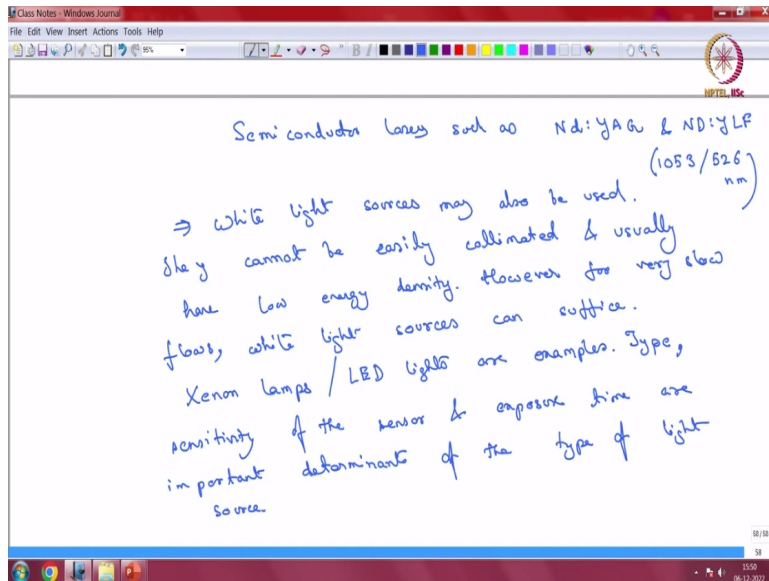 Class Notes - Windows Journal
File Edit View Insert Actions Tools Help
95%
NPTEL, IISc
Semi conductor lasers such as Nd:YAG & ND:YLF
(1053/526 nm)
⇒ White light sources may also be used.
They cannot be easily collimated & usually
have low energy density. However for very slow
flows, white light sources can suffice.
Xenon lamps / LED lights are examples. Type,
sensitivity of the sensor & exposure time are
important determinants of the type of light
source
58/58
58
15:50
06-12-2022